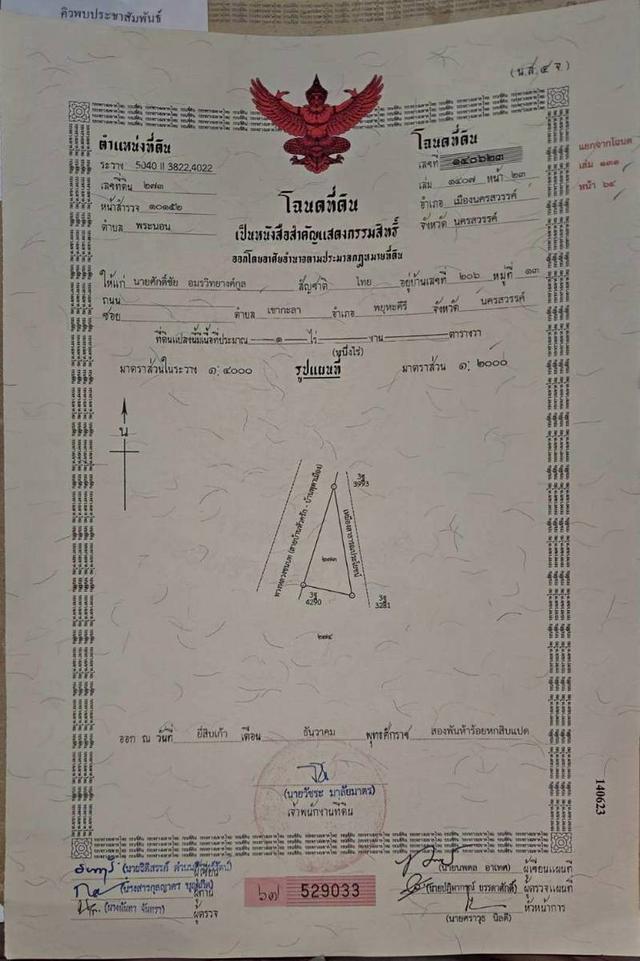 คิวพบประชาสัมพันธ์
(น.ส.๔ จ.)
ตำแหน่งที่ดิน
ระวาง 5040 II 3822,4022
เลขที่ดิน ๒๗๓
หน้าสำรวจ ๑๐๑๕๒
ตำบล พระนอน
โฉนดที่ดิน
เลขที่ ๑๔๐๖๒๓
เล่ม ๑๔๐๗ หน้า ๒๓
อำเภอ เมืองนครสวรรค์
จังหวัด นครสวรรค์
แยกจากโฉนด
เล่ม ๑๓๑
หน้า ๖๔
โฉนดที่ดิน
เป็นหนังสือสำคัญแสดงกรรมสิทธิ์
ออกโดยอาศัยอำนาจตามประมวลกฎหมายที่ดิน
ให้แก่ นายศักดิ์ชัย อมรวิทยางค์กูล สัญชาติ ไทย อยู่บ้านเลขที่ ๒๐๖ หมู่ที่ ๑๓
ถนน
ซอย ตำบล เขากะลา อำเภอ พยุหะคีรี จังหวัด นครสวรรค์
ที่ดินแปลงนี้มีเนื้อที่ประมาณ ๑ ไร่ งาน ตารางวา
(หนึ่งไร่)
มาตราส่วนในระวาง ๑:๔๐๐๐ รูปแผนที่ มาตราส่วน ๑:๒๐๐๐
น
3ฐ
3993
๒๗๓
3ฐ
4290
3ฐ
3281
๒๗๔
ออก ณ วันที่ ยี่สิบเก้า เดือน ธันวาคม พุทธศักราช สองพันห้าร้อยหกสิบแปด
(นายวัชระ มาลัยมาตร)
เจ้าพนักงานที่ดิน
140623
ผู้เขียน
ผู้ทาน
(นางนันทา จันทรา) ผู้ตรวจ
๖๗ 529033
(นายนพดล อาเทศ) ผู้เขียนแผนที่
ผู้ตรวจแผนที่
หัวหน้าการ
(นายศราวุธ นิลดี)